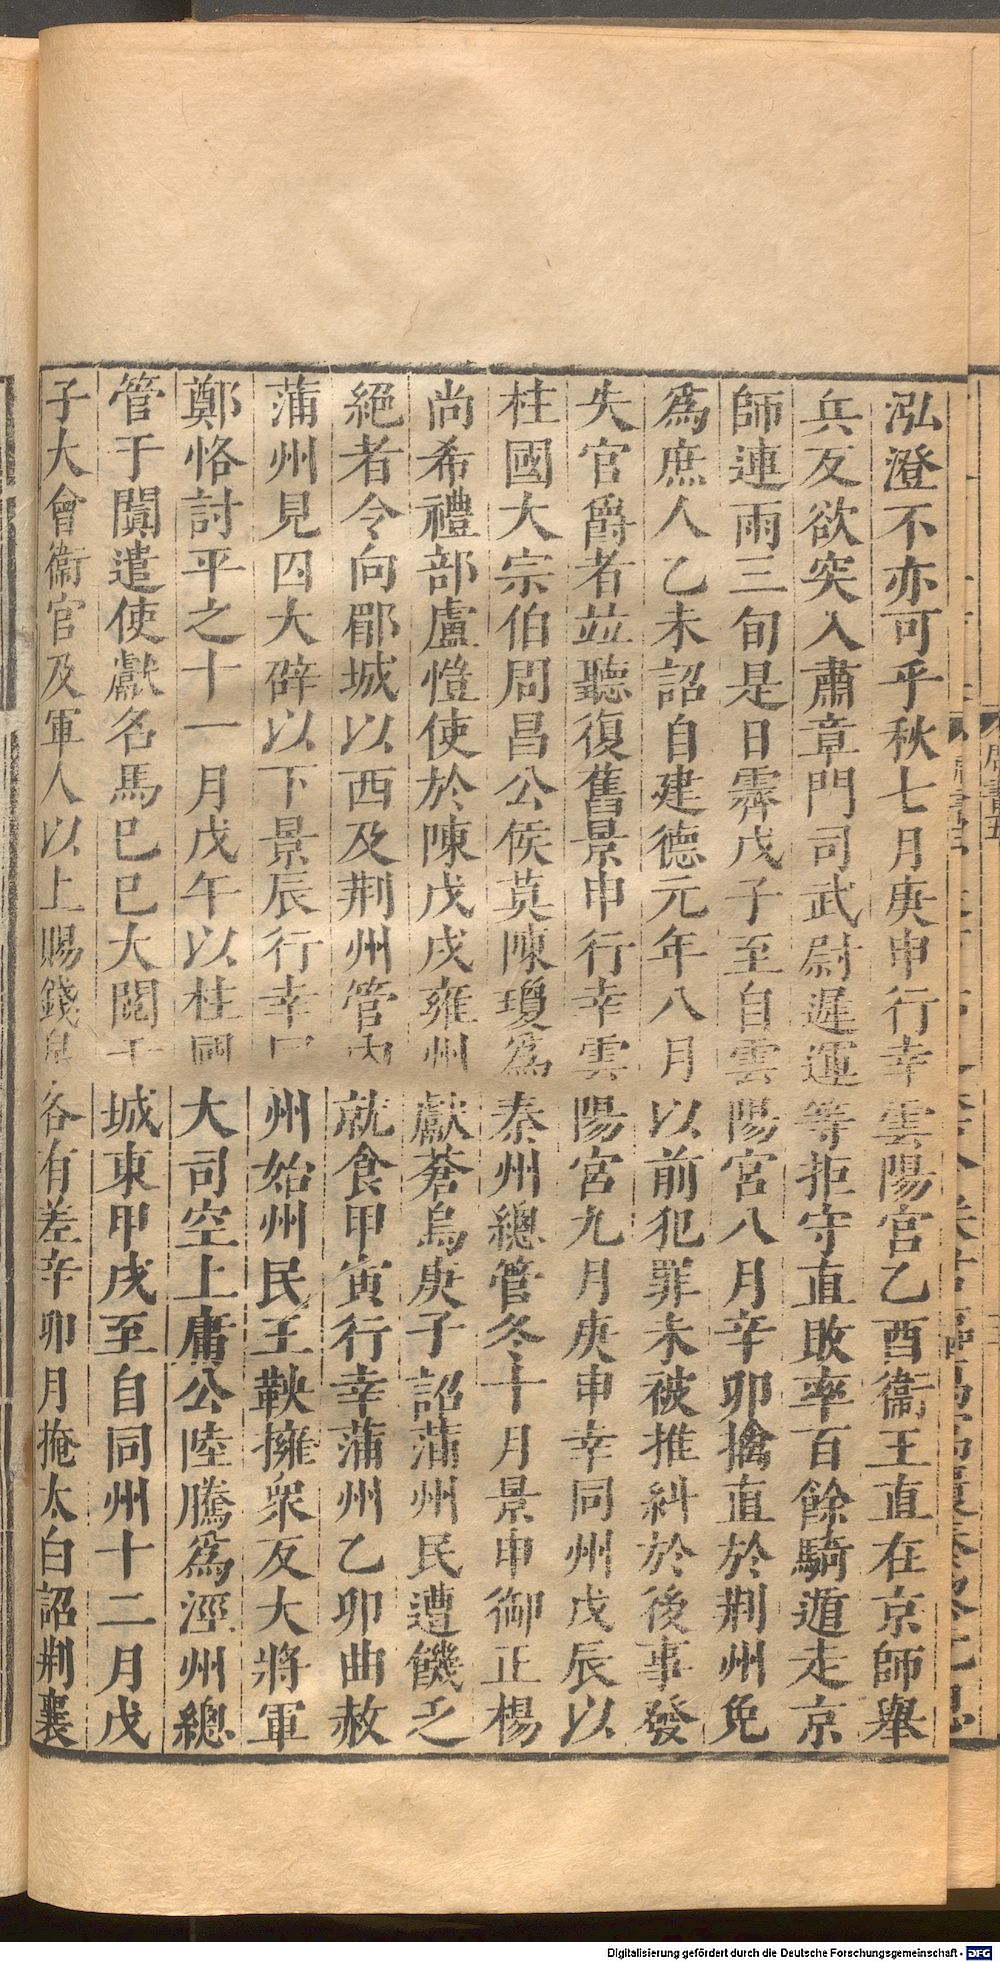 泓澄不亦可乎秋七月庚申行幸雲陽宮乙酉衞王直在京師舉
兵反欲突入肅章門司武尉遲運等拒守直敗率百餘騎遁走京
師連雨三旬是日霽戊子至自雲陽宮八月辛卯擒直於荆州免
爲庶人乙未詔自建德元年八月以前犯罪未被推糾於後事發
失官爵者並聽復舊景申行幸雲陽宮九月庚申幸同州戊辰以
柱國大宗伯周昌公侯莫陳瓊爲秦州總管冬十月景申御正楊
尚希禮部盧愷使於陳戊戌雍州獻蒼烏庚子詔蒲州民遭饑乏
絕者令向郿城以西及荆州管內就食甲寅行幸蒲州乙卯曲赦
蒲州見囚大辟以下景辰行幸同州始州民王鞅擁衆反大將軍
鄭恪討平之十一月戊午以柱國大司空上庸公陸騰爲涇州總
管于闐遣使獻名馬己巳大閱于城東甲戌至自同州十二月戊
子大會衞官及軍人以上賜錢帛各有差辛卯月掩太白詔荆襄
周書五
Digitalisierung gefördert durch die Deutsche Forschungsgemeinschaft - DFG